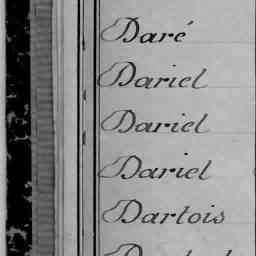 Daré
Dariel
Dariel
Dariel
Dartois